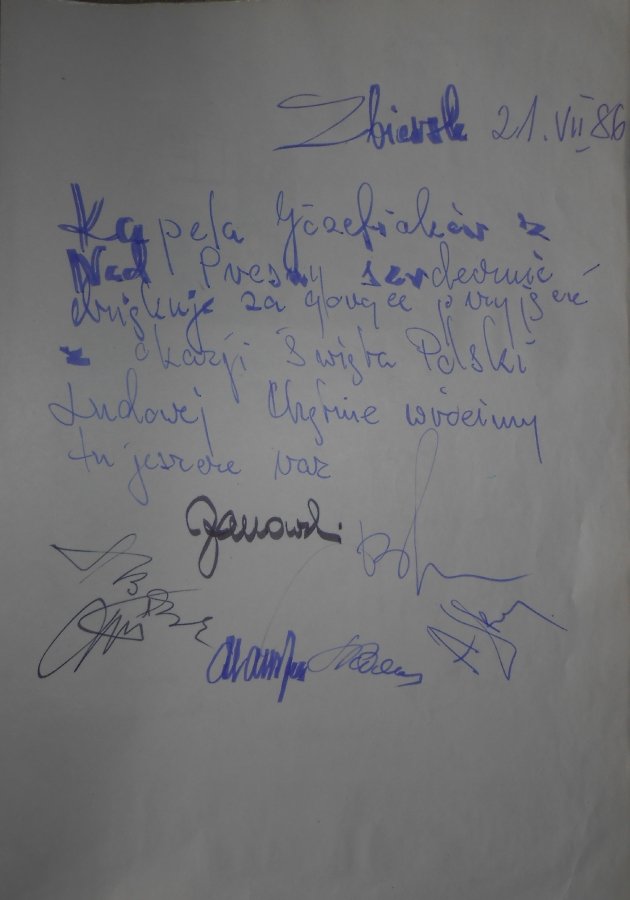 Zbiersk 21.VII.86
Kapela Józefioków z
Nad Prosny serdecznie
dziękuje za gorące przyjęcie
z okazji Święta Polski
Ludowej Chętnie wrócimy
tu jeszcze raz
Janowski